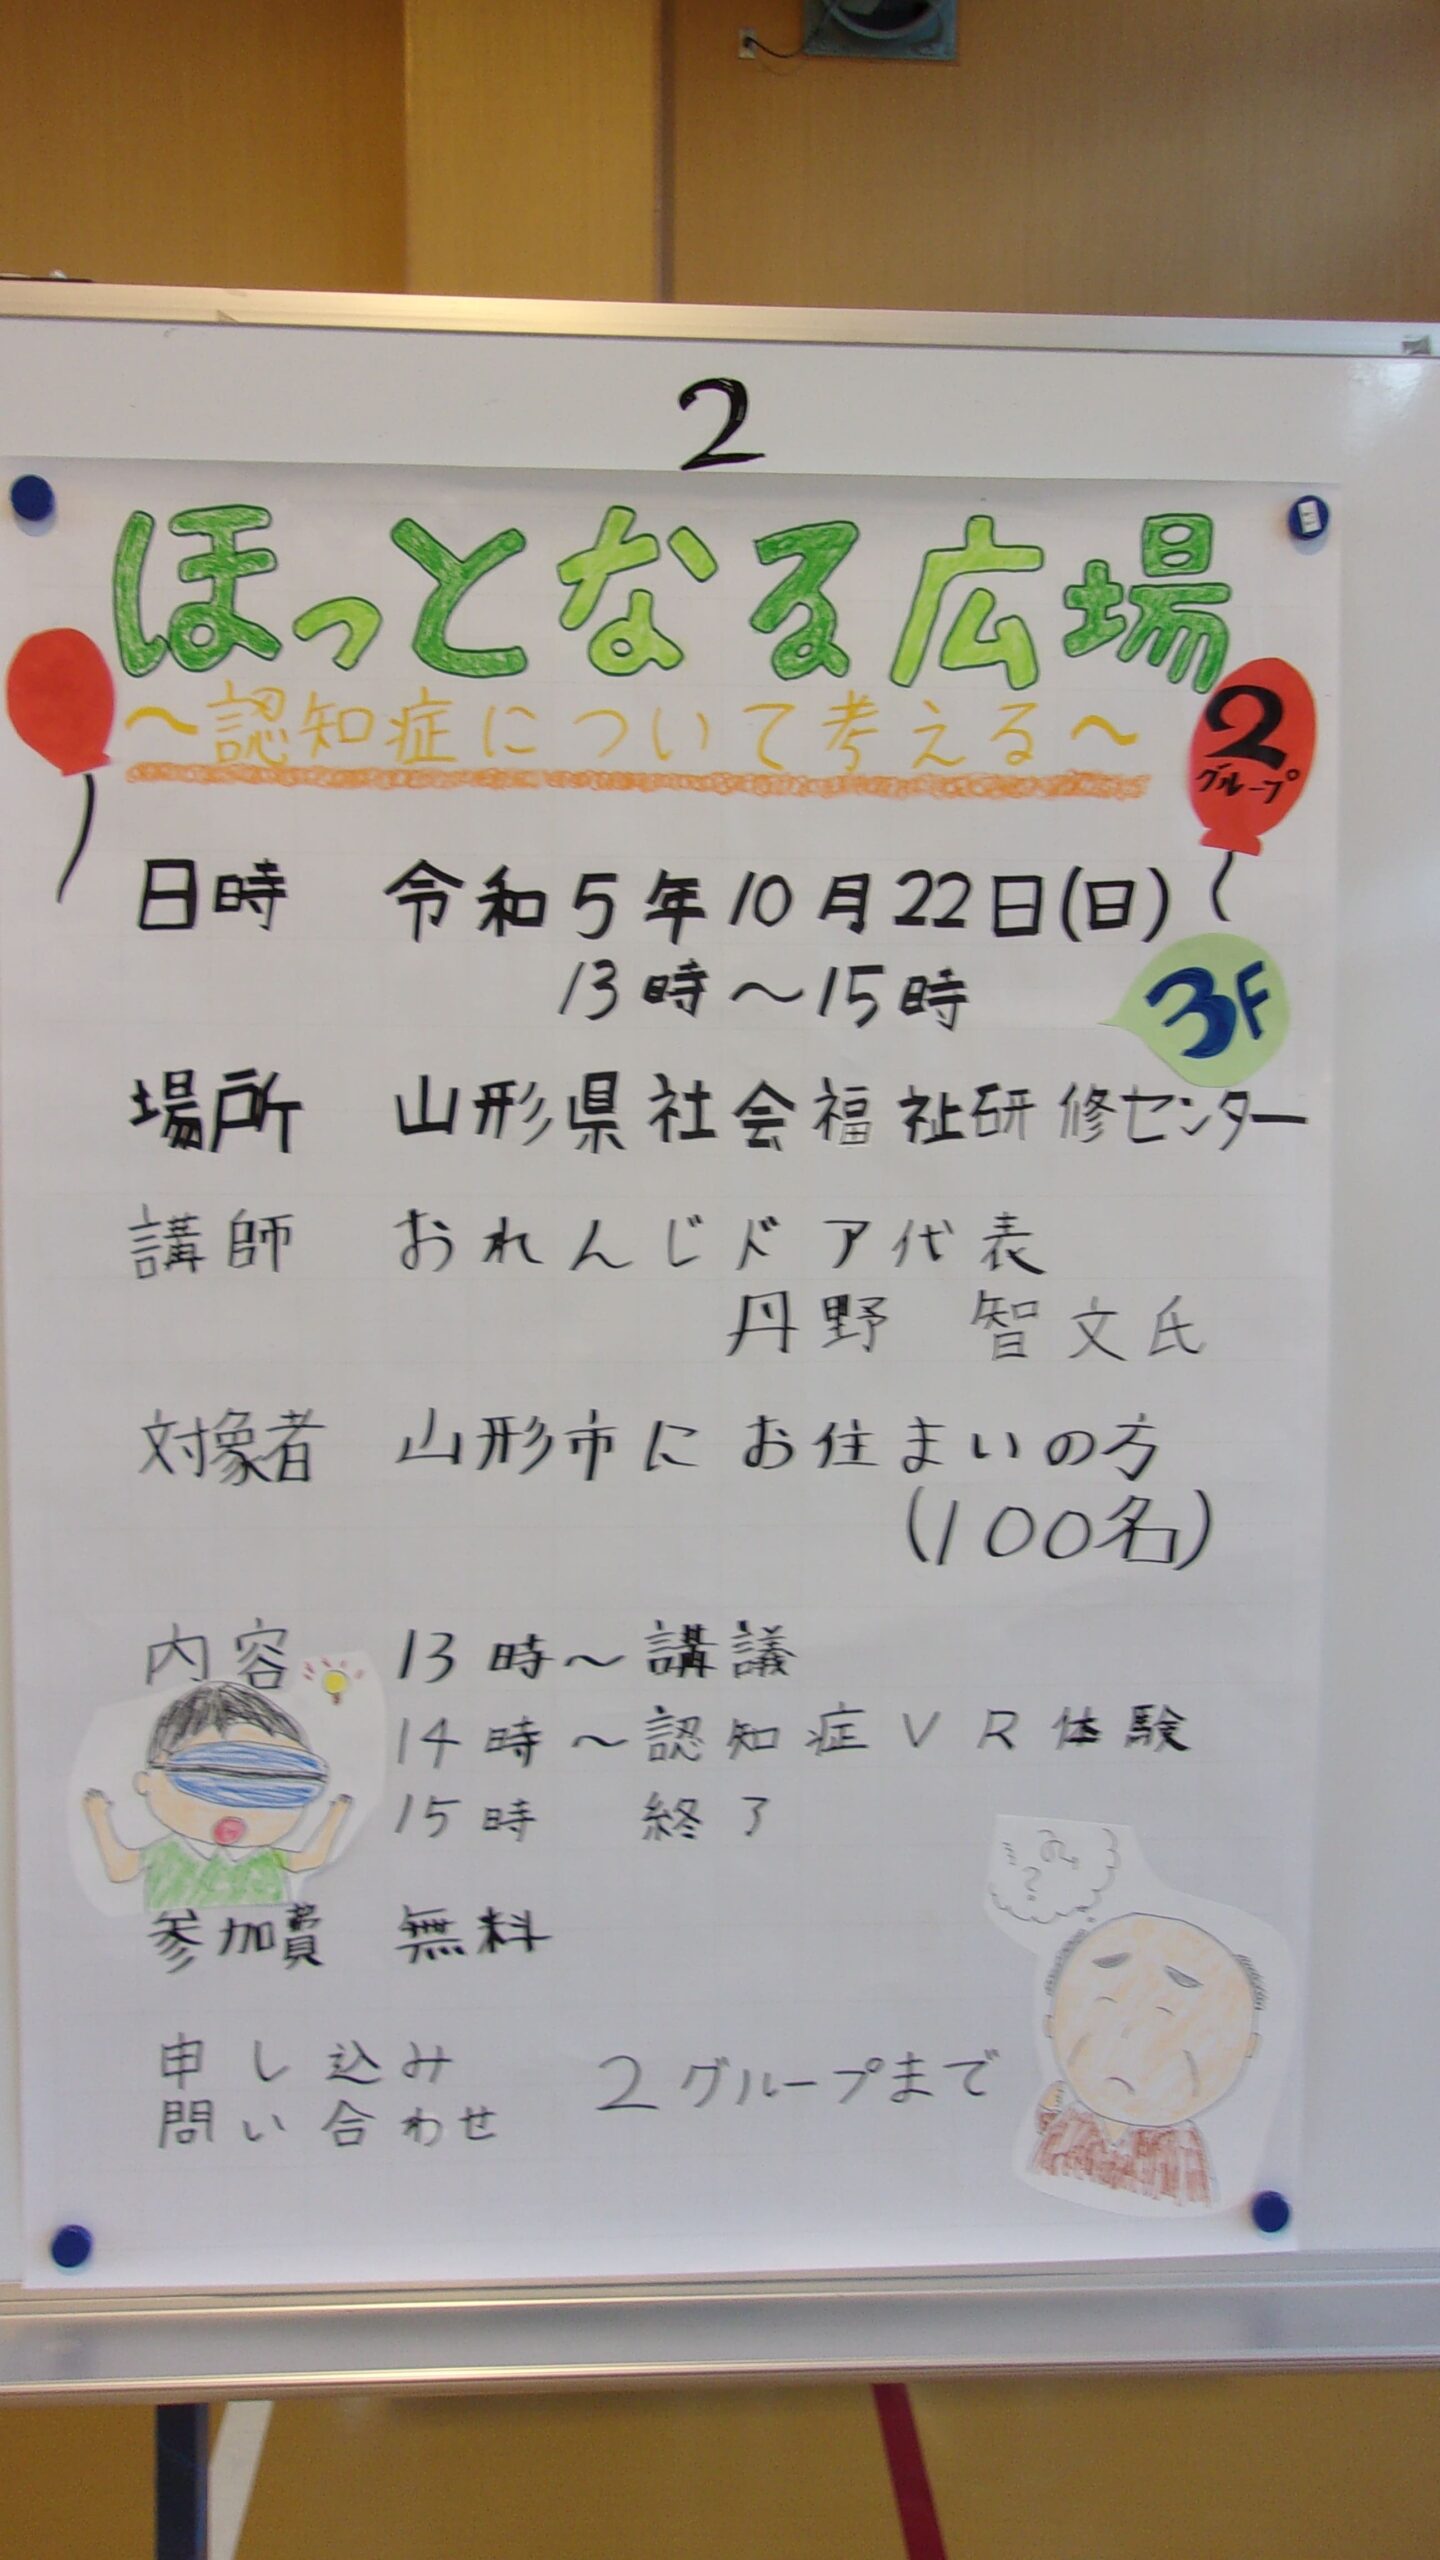 2
ほっとなる広場
～認知症について考える～
2
グループ
日時 令和5年10月22日(日)
13時～15時
3F
場所 山形県社会福祉研修センター
講師 おれんじドア代表
丹野 智文氏
対象者 山形市にお住まいの方
(100名)
内容 13時～講議
14時～認知症VR体験
15時 終了
参加費 無料
申し込み
問い合わせ 2グループまで